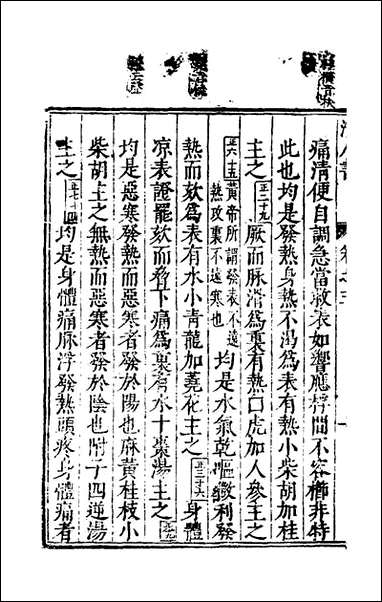 痛清便自調急當救表如響應桴間不容櫛非特
此也均是發熱身熱不渴爲表有熱小柴胡加桂
主之正三十九厥而脉滑爲裏有熱白虎加人參主之
正六五黃帝所謂發表不遠熱攻裏不遠寒也均是水氣乾嘔微利發
熱而欬爲表有水小青龍加蕘花主之正三十六身體
凉表證罷欬而脅下痛爲裏有水十棗湯主之
均是惡寒發熱而惡寒者發於陽也麻黃桂枝小
柴胡主之無熱而惡寒者發於陰也附子四逆湯
主之均是身體痛脉浮發熱頭疼身體痛者